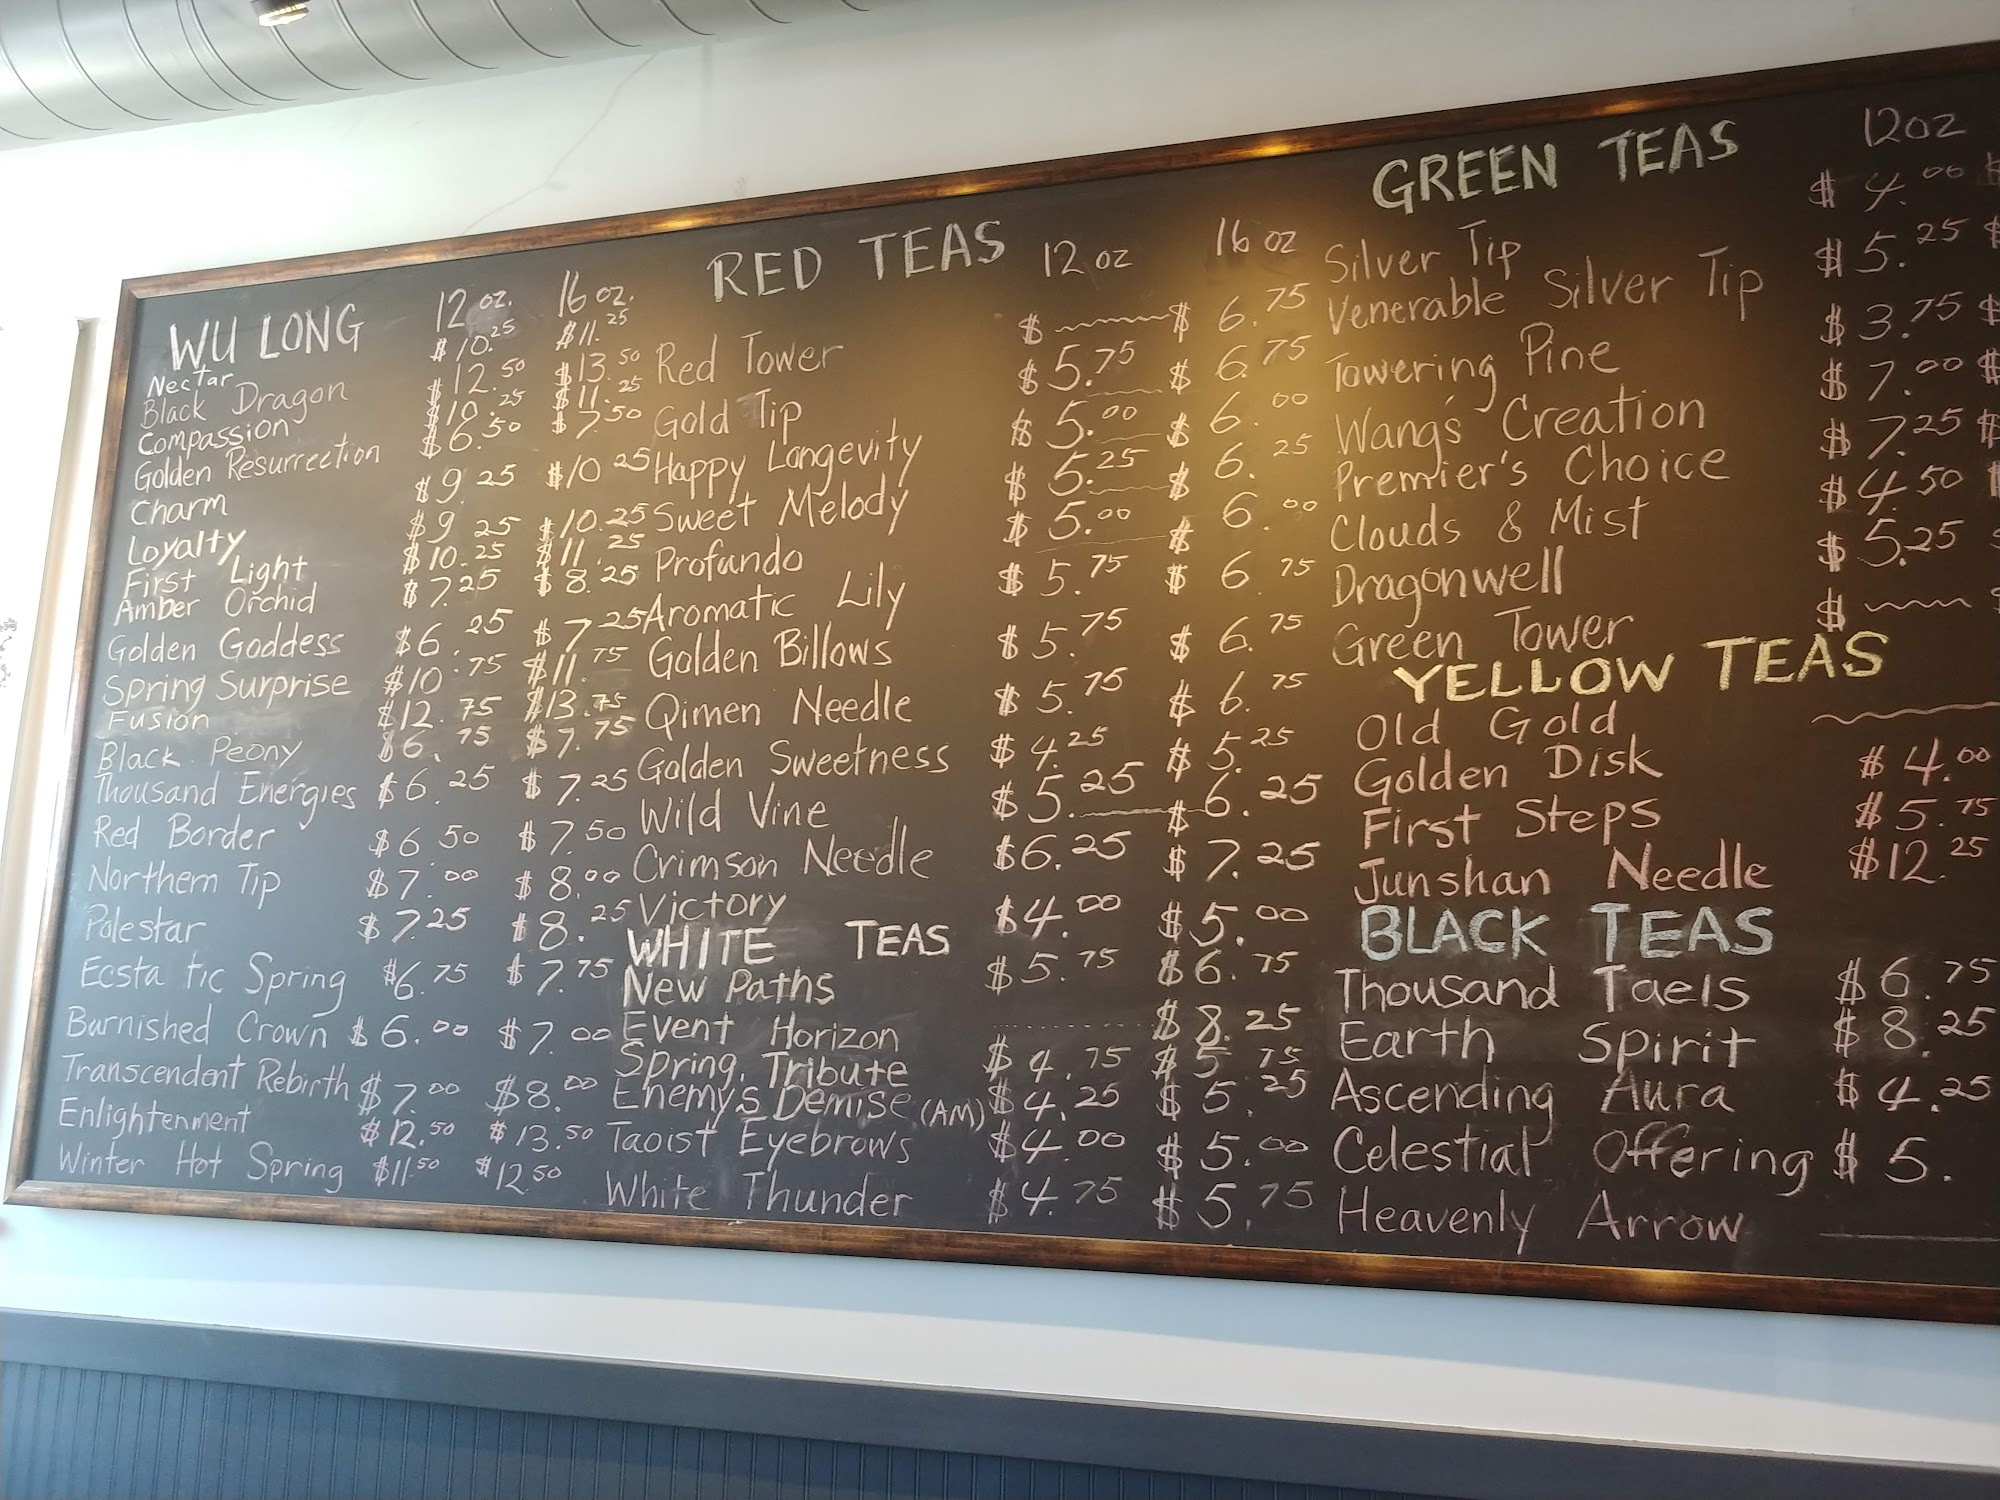 WU LONG 12 oz. 16 oz.
Nectar $10.25 $11.25
Black Dragon $12.50 $13.50
Compassion $10.25 $11.25
Golden Resurrection $6.50 $7.50
Charm $9.25 $10.25
Loyalty $9.25 $10.25
First Light $10.25 $11.25
Amber Orchid $7.25 $8.25
Golden Goddess $6.25 $7.25
Spring Surprise $10.75 $11.75
Fusion $12.75 $13.75
Black Peony $6.75 $7.75
Thousand Energies $6.25 $7.25
Red Border $6.50 $7.50
Northern Tip $7.00 $8.00
Palestar $7.25 $8.25
Ecstatic Spring $6.75 $7.75
Burnished Crown $6.00 $7.00
Transcendent Rebirth $7.00 $8.00
Enlightenment $12.50 $13.50
Winter Hot Spring $11.50 $12.50
RED TEAS 12 oz 16 oz
Red Tower $ $6.75
Gold Tip $5.75 $6.75
Happy Longevity $5.00 $6.00
Sweet Melody $5.25 $6.25
Profundo $5.00 $6.00
Aromatic Lily $5.75 $6.75
Golden Billows $5.75 $6.75
Qimen Needle $5.75 $6.75
Golden Sweetness $4.25 $5.25
Wild Vine $5.25 $6.25
Crimson Needle $6.25 $7.25
Victory $4.00 $5.00
WHITE TEAS
New Paths $5.75 $6.75
Event Horizon $8.25
Spring Tribute $4.75 $5.75
Enemy's Demise (AM) $4.25 $5.25
Taoist Eyebrows $4.00 $5.00
White Thunder $4.75 $5.75
GREEN TEAS 12oz
Silver Tip $4.00 $
Venerable Silver Tip $5.25 $
Towering Pine $3.75 $
Wang's Creation $7.00 $
Premier's Choice $7.25 $
Clouds & Mist $4.50 $
Dragonwell $5.25 $
Green Tower $ $
YELLOW TEAS
Old Gold
Golden Disk $4.00
First Steps $5.75
Junshan Needle $12.25
BLACK TEAS
Thousand Taels $6.75
Earth Spirit $8.25
Ascending Aura $4.25
Celestial Offering $5.
Heavenly Arrow